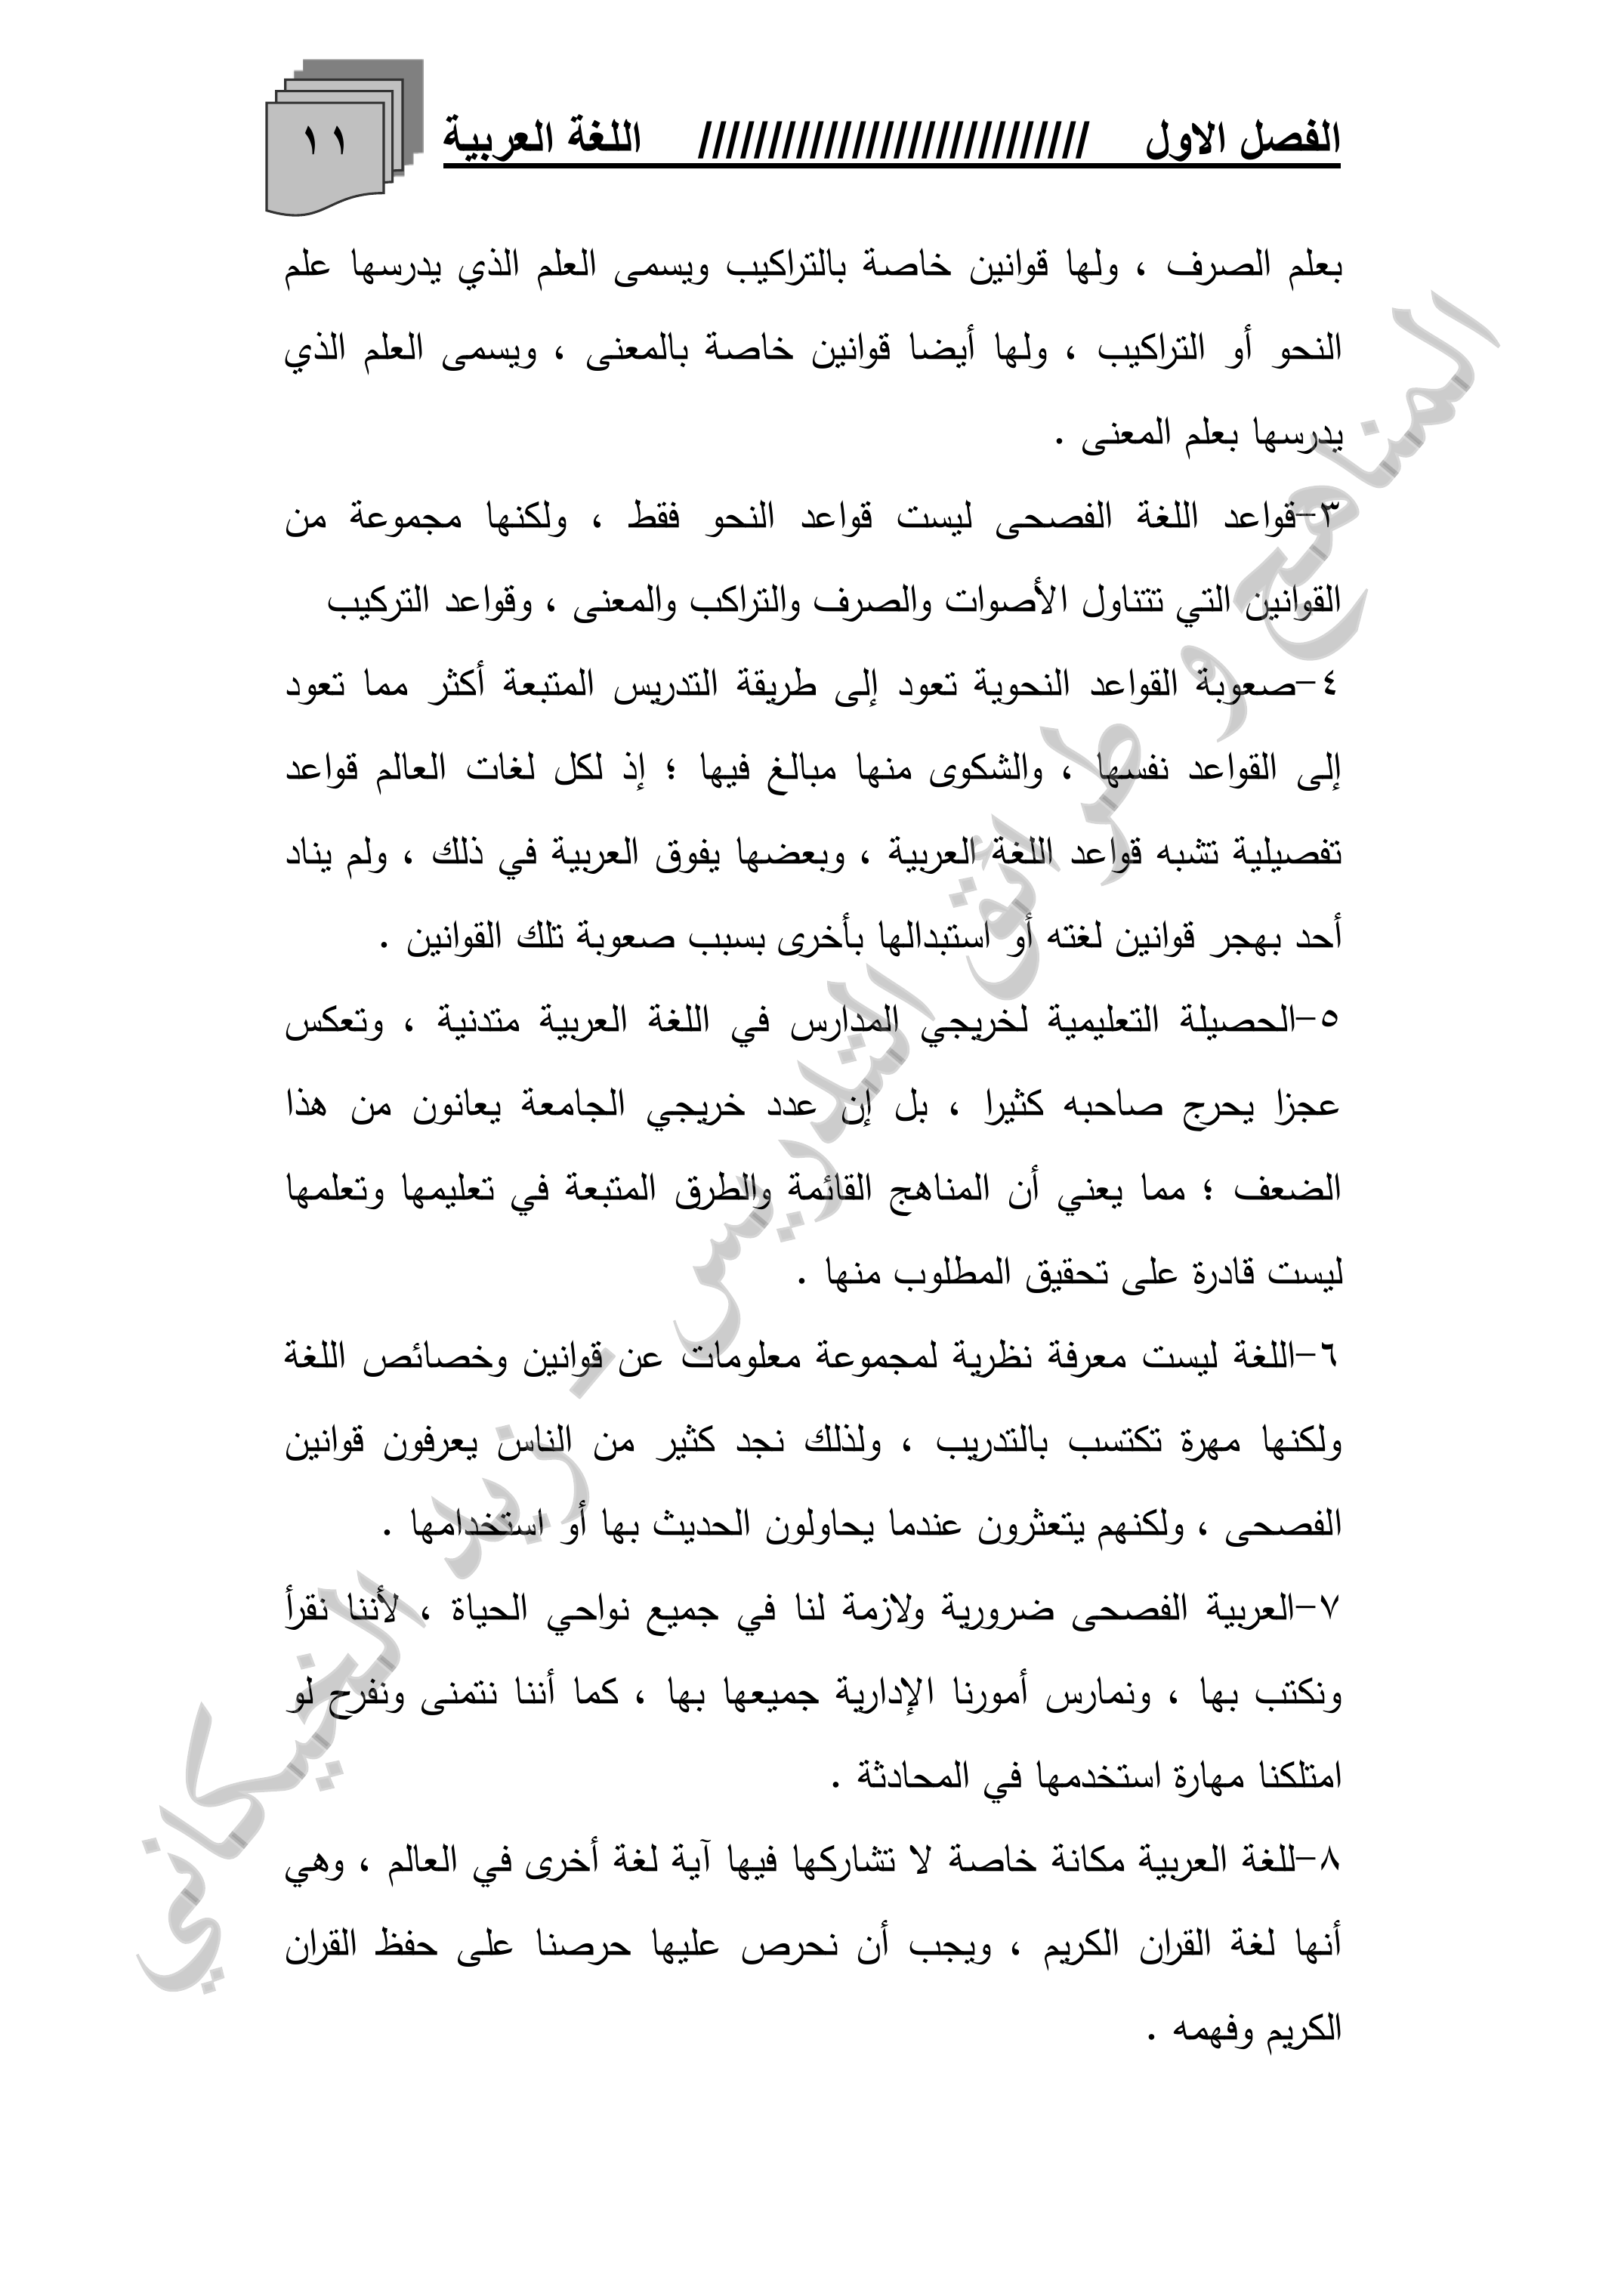 الفصل الاول //////////////////////////// اللغة العربية
١١
بعلم الصرف ، ولها قوانين خاصة بالتراكيب ويسمى العلم الذي يدرسها علم
النحو أو التراكيب ، ولها أيضا قوانين خاصة بالمعنى ، ويسمى العلم الذي
يدرسها بعلم المعنى .
٣-قواعد اللغة الفصحى ليست قواعد النحو فقط ، ولكنها مجموعة من
القوانين التي تتناول الأصوات والصرف والتراكب والمعنى ، وقواعد التركيب
٤-صعوبة القواعد النحوية تعود إلى طريقة التدريس المتبعة أكثر مما تعود
إلى القواعد نفسها ، والشكوى منها مبالغ فيها ؛ إذ لكل لغات العالم قواعد
تفصيلية تشبه قواعد اللغة العربية ، وبعضها يفوق العربية في ذلك ، ولم يناد
أحد بهجر قوانين لغته أو استبدالها بأخرى بسبب صعوبة تلك القوانين .
٥-الحصيلة التعليمية لخريجي المدارس في اللغة العربية متدنية ، وتعكس
عجزا يحرج صاحبه كثيرا ، بل إن عدد خريجي الجامعة يعانون من هذا
الضعف ؛ مما يعني أن المناهج القائمة والطرق المتبعة في تعليمها وتعلمها
ليست قادرة على تحقيق المطلوب منها .
٦-اللغة ليست معرفة نظرية لمجموعة معلومات عن قوانين وخصائص اللغة
ولكنها مهرة تكتسب بالتدريب ، ولذلك نجد كثير من الناس يعرفون قوانين
الفصحى ، ولكنهم يتعثرون عندما يحاولون الحديث بها أو استخدامها .
٧-العربية الفصحى ضرورية ولازمة لنا في جميع نواحي الحياة ، لأننا نقرأ
ونكتب بها ، ونمارس أمورنا الإدارية جميعها بها ، كما أننا نتمنى ونفرح لو
امتلكنا مهارة استخدمها في المحادثة .
٨-للغة العربية مكانة خاصة لا تشاركها فيها آية لغة أخرى في العالم ، وهي
أنها لغة القران الكريم ، ويجب أن نحرص عليها حرصنا على حفظ القران
الكريم وفهمه .
المناهج و طرائق التدريس - زيد الخيكاني